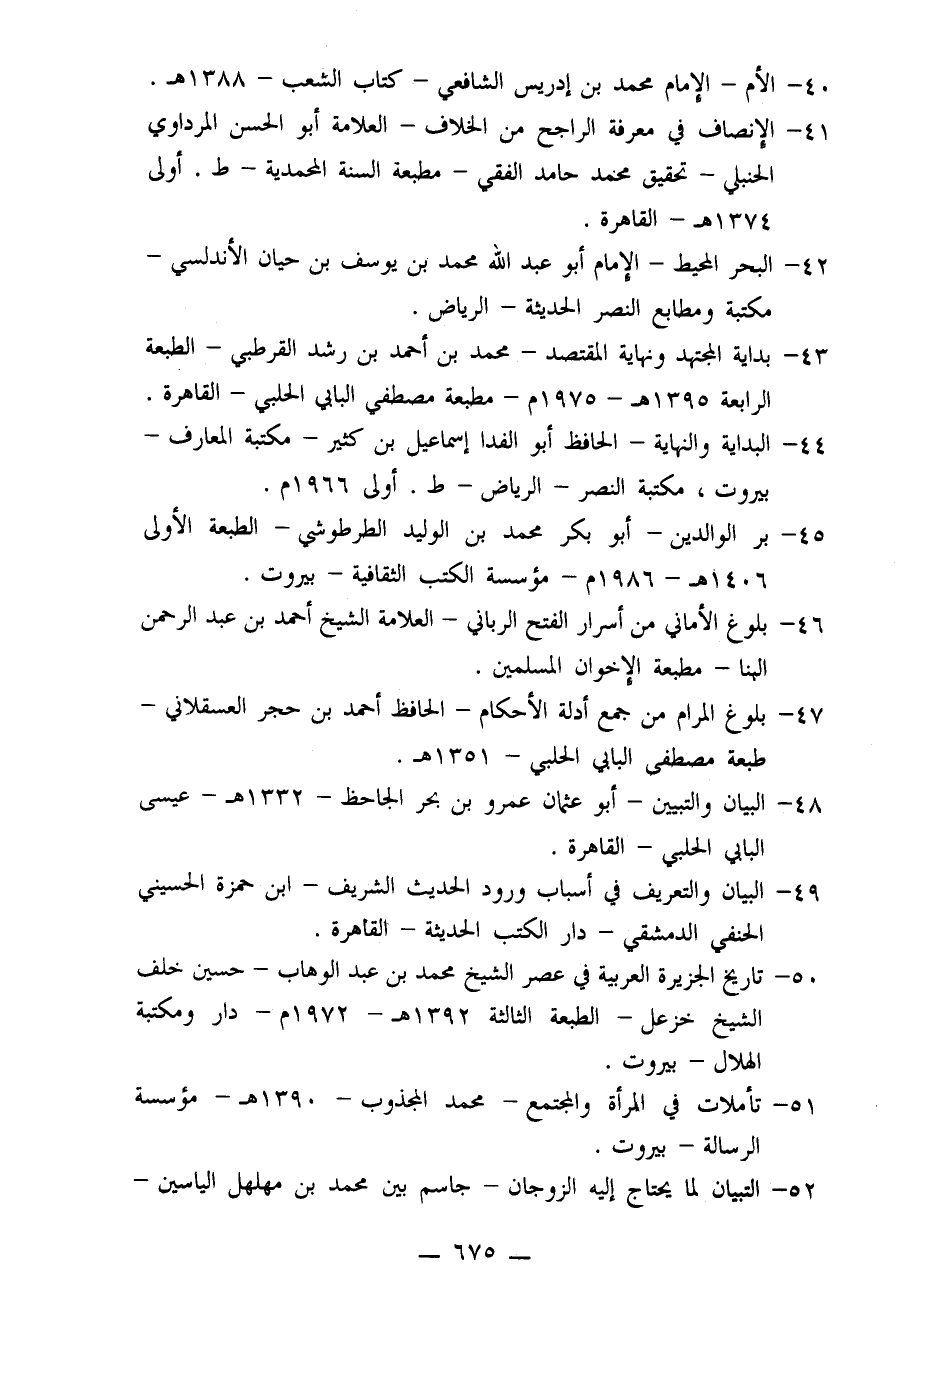 ٤٠- الأم - الإمام محمد بن إدريس الشافعي - كتاب الشعب - ١٣٨٨هـ .
٤١- الإنصاف في معرفة الراجح من الخلاف - العلامة أبو الحسن المرداوي
الحنبلي - تحقيق محمد حامد الفقي - مطبعة السنة المحمدية - ط . أولى
١٣٧٤هـ - القاهرة .
٤٢- البحر المحيط - الإمام أبو عبد الله محمد بن يوسف بن حيان الأندلسي -
مكتبة ومطابع النصر الحديثة - الرياض .
٤٣- بداية المجتهد ونهاية المقتصد - محمد بن أحمد بن رشد القرطبي - الطبعة
الرابعة ١٣٩٥هـ - ١٩٧٥م - مطبعة مصطفي البابي الحلبي - القاهرة .
٤٤- البداية والنهاية - الحافظ أبو الفدا إسماعيل بن كثير - مكتبة المعارف -
بيروت ، مكتبة النصر - الرياض - ط . أولى ١٩٦٦م .
٤٥- بر الوالدين - أبو بكر محمد بن الوليد الطرطوشي - الطبعة الأولى
١٤٠٦هـ - ١٩٨٦م - مؤسسة الكتب الثقافية - بيروت .
٤٦- بلوغ الأماني من أسرار الفتح الرباني - العلامة الشيخ أحمد بن عبد الرحمن
البنا - مطبعة الإخوان المسلمين .
٤٧- بلوغ المرام من جمع أدلة الأحكام - الحافظ أحمد بن حجر العسقلاني -
طبعة مصطفى البابي الحلبي - ١٣٥١هـ .
٤٨- البيان والتبيين - أبو عثمان عمرو بن بحر الجاحظ - ١٣٣٢هـ - عيسى
البابي الحلبي - القاهرة .
٤٩- البيان والتعريف في أسباب ورود الحديث الشريف - ابن حمزة الحسيني
الحنفي الدمشقي - دار الكتب الحديثة - القاهرة .
٥٠- تاريخ الجزيرة العربية في عصر الشيخ محمد بن عبد الوهاب - حسين خلف
الشيخ خزعل - الطبعة الثالثة ١٣٩٢هـ - ١٩٧٢م - دار ومكتبة
الهلال - بيروت .
٥١- تأملات في المرأة والمجتمع - محمد المجذوب - ١٣٩٠هـ - مؤسسة
الرسالة - بيروت .
٥٢- التبيان لما يحتاج إليه الزوجان - جاسم بين محمد بن مهلهل الياسين -
— ٦٧٥ —